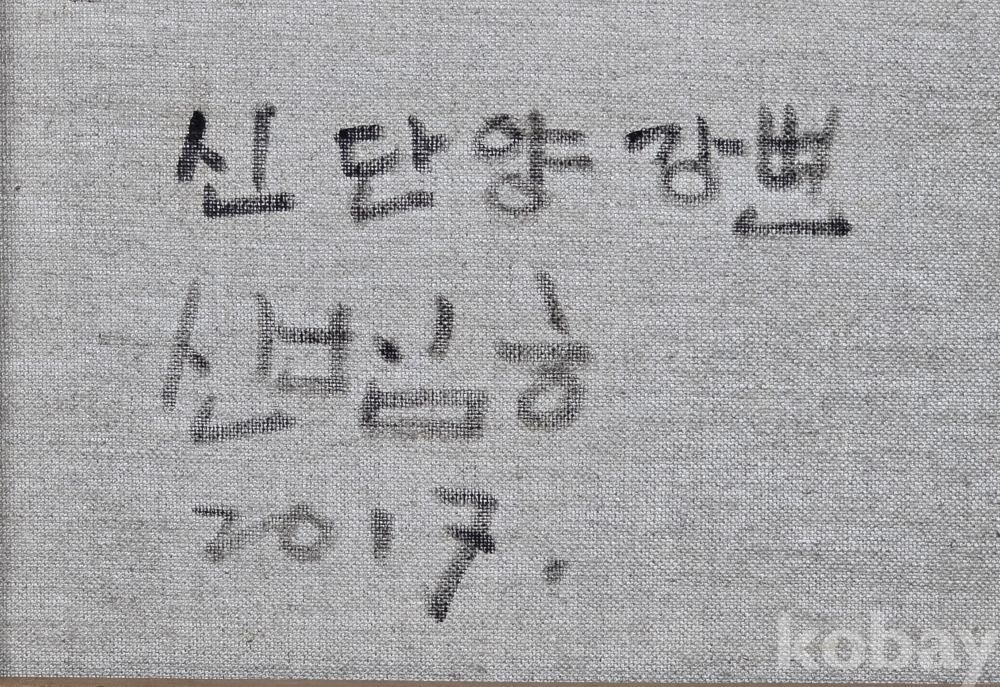 신 단양 강변
신범승
2017.
kobay